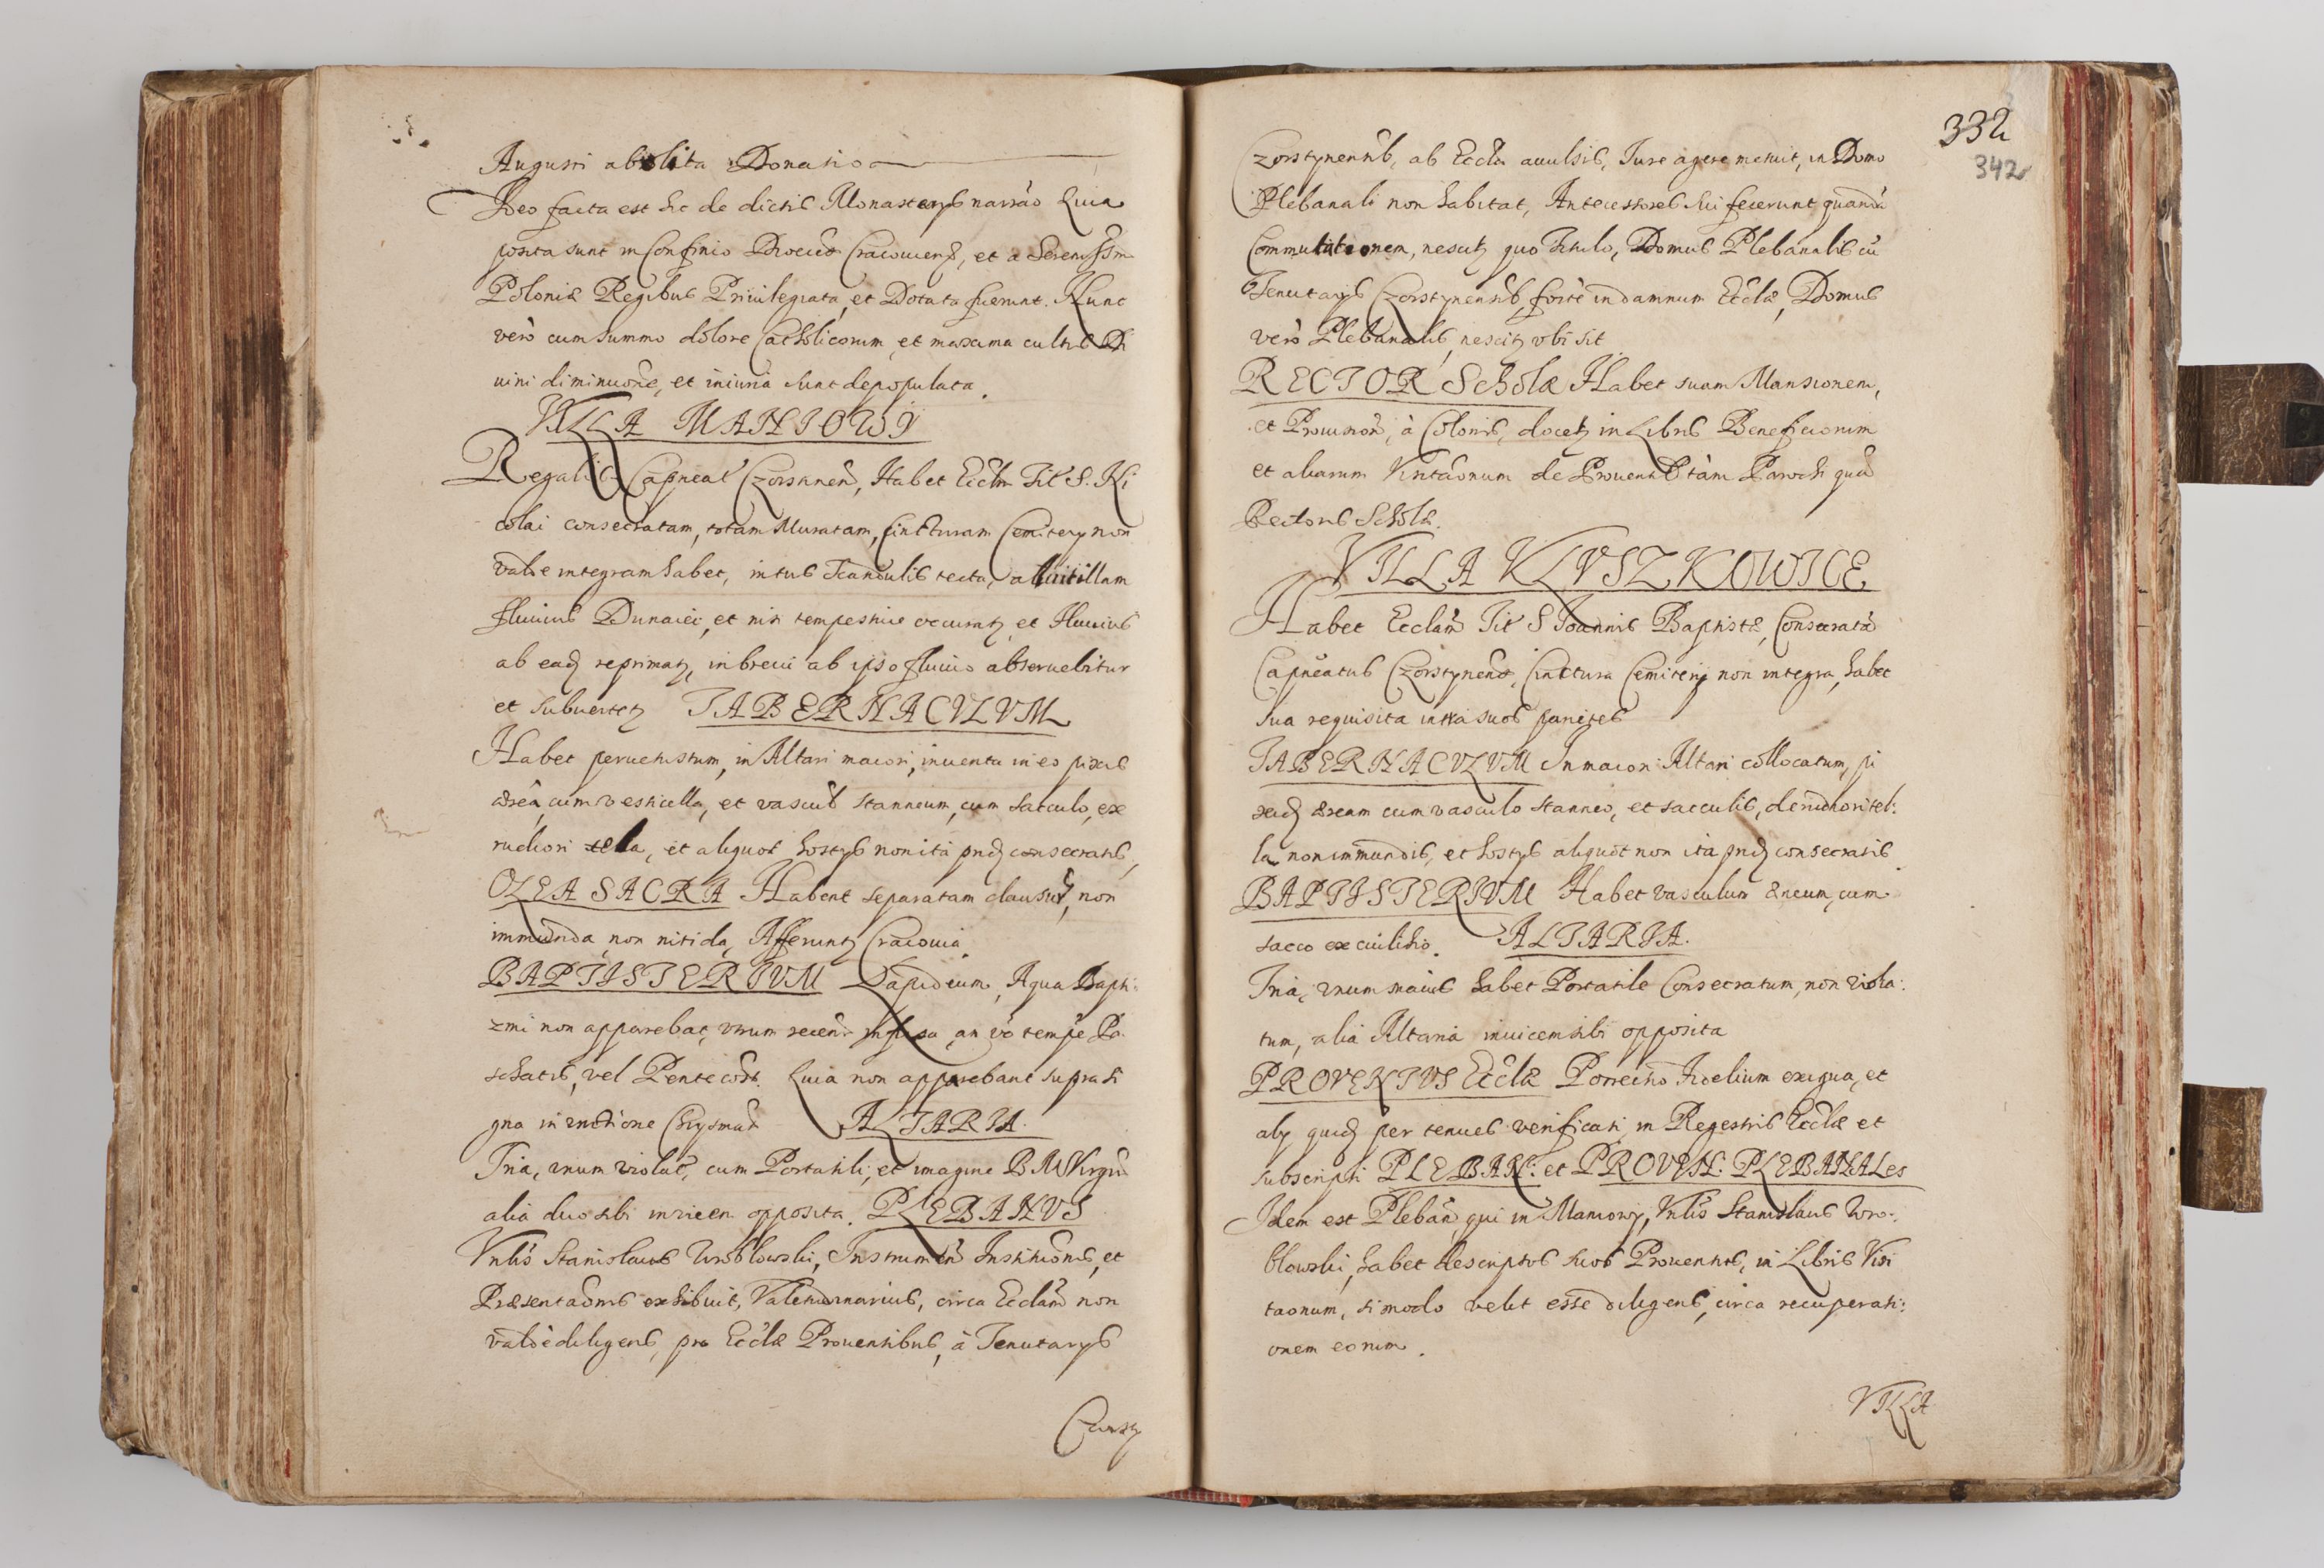 Augusti abolita Donatio
Ideo facta est hic de dictis Monasterijs narrão Quia
posita sunt in Confinio Dioeces Cracouiens, et a Serenissim
Poloniæ Regibus Priuilegiata, et Dotata fuerunt. Nunc
verò cum summo dolore Catholicorum, et maxima cultus Di
uini diminuõne, et iniuria sunt depopulata.
VILLA MANIOWY
Regalis Capneat Czorstinen, Habet Eccłm Tit S. Ni
colai consecratam, totam Muratam, Cinctturam Cemiterij non
valde integram habet, intus Scandulis tecta, alluit illam
fluuius Dunaiec, et nisi tempestiue occuratz et fluuius
ab eadz reprimatz, in breui ab ipso fluuio absoruebitur
et subuertetz TABERNACVLVM
Habet peruetustum, in Altari maiori, inuenta in eo pixis
ærea, cum vesticella, et vascul stanneum, cum sacculo, ex
rudiori tela, et aliquot hostijs non ita pridz consecratis,
OLEA SACRA Habent separatam clausur, non
immunda, non nitida, Afferuntz Cracouia
BAPTISTERIVM Lapideum, Aqua Bapti:
zmi non apparebat, vtrum recent infusa, an vo tempe Pa
schatis, vel Pentecost. Quia non apparebant supra si
gna in vnctione Chrysmat ALTARIA.
Tria, vnum violat, cum Portatili, et imagine B M Virgin
alia duo sibi inuicem opposita. PLEBANVS
Vnlis Stanislaus Wroblowski, Instrumen Institutionis, et
Præsentaõnis exhibuit, Valetudinarius, circa Ecclam non
valdè diligens, pro Ecclæ Prouentibus, à Tenutarijs
Czorszty
332
342
Czorstynensib, ab Eccla auulsis, Iure agere metuit, in Domo
Plebanali non habitat, Antecessores sui fecerunt quandã
Commutationem, nescitz quo titulo, Domus Plebanalis cũ
Tenutarijs Czorstynensib, forte in damnum Ecclæ, Domus
verò Plebanalis, nescitz vbi sit
RECTOR Scholæ Habet suam Mansionem,
et Prouision, à Colonis, docetz in Libris Beneficiorum
et aliarum Visitaõnum de Prouentib tàm Parochi quã
Rectoris Scholæ.
VILLA KLVSZKOWICE
Habet Ecclam Tit S Ioannis Baptistæ, Consecratã
Capneatus Czorstynens, Cinctura Cemiterij non integra, habet
sua requisita intra suos parietes
TABERNACVLVM In maiori Altari collocatum, pi
xidz æream cum vasculo stanneo, et sacculis, de rudiori tel:
la non immundis, et hostijs aliquot non ita pridz consecratis
BAPTISTERIVM Habet vasculum æneum, cum
sacco ex cuilitio. ALTARIA.
Tria, vnum maius habet Portatile Consecratum, non viola:
tum, alia Altaria inuicem sibi opposita
PROVENTVS Ecclæ Porrectio fidelium exigua, et
alij quidz per tenues verificati in Regestris Ecclæ et
subscripti PLEBAN: et PROVEN: PLEBANALes
Idem est Pleban, qui in Maniowy, Vnlis Stanislaus Wro:
blowski, habet descriptos suos Prouentus, in Libris Visi
taonum, si modo velit esse diligens, circa recuperati:
onem eorum.
VILLA